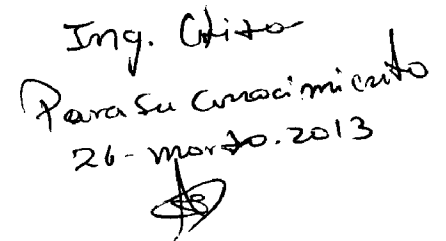 Ing.
Para su conocimiento
26-marzo.2013